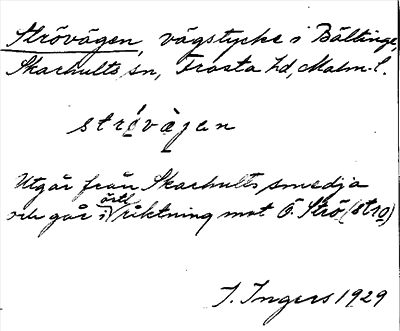 Strövägen, vägstycke i Bällinge,
Skarhults sn, Frosta hd, Malm. l.
strövajen
Utgår från Skarhults smedja
och går i östl riktning mot Ö. Strö (stro)
I. Ingers 1929